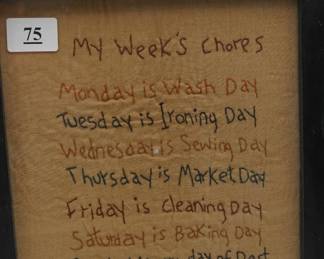 75
My Week's Chores
Monday is Wash Day
Tuesday is Ironing Day
Wednesday is Sewing Day
Thursday is Market Day
Friday is Cleaning Day
Saturday is Baking Day
day of